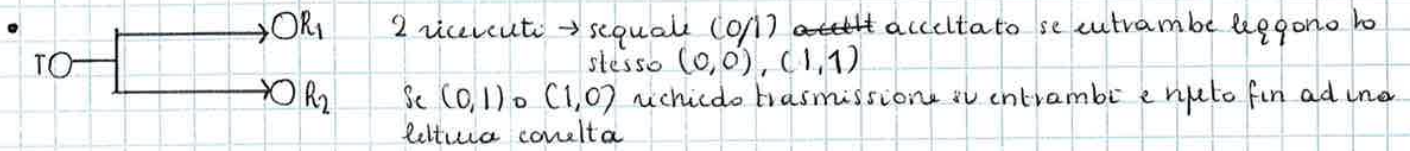 R1 2 riceventi → segnale (0/1) accettato se entrambe leggono lo
TO stesso (0,0), (1,1)
R2 Se (0,1) o (1,0) richiedo trasmissione su entrambi e ripeto fin ad una
lettura corretta